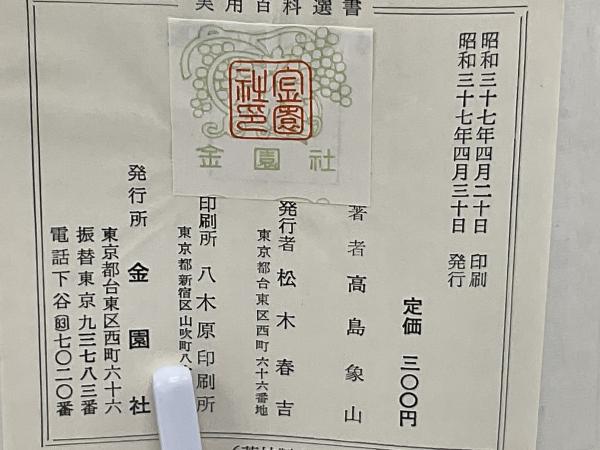 実用百科選書
昭和三十七年四月二十日　印刷
昭和三十七年四月三十日　発行
定価　三〇〇円
著者　高島象山
発行者　松木春吉
東京都台東区西町六十六番地
印刷所　八木原印刷所
東京都新宿区山吹町八
発行所　金園社
東京都台東区西町六十六
振替東京九三七八三番
電話下谷(83)七〇二〇番
金園社印
金園社